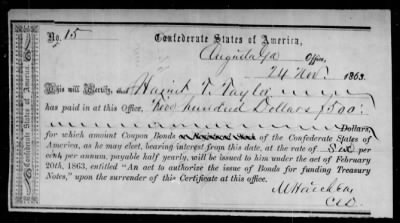 No. 15
Confederate States of America,
Augusta Ga Office,
24 Nov. 1863.
This will Certify, that T. Taylor
has paid in at this Office, hundred Dollars $500
Dollars,
for which amount Coupon Bonds of the Confederate States of
America, as he may elect, bearing interest from this date, at the rate of Six per
cent per annum, payable half yearly, will be issued to him under the act of February
20th, 1863, entitled "An act to authorize the issue of Bonds for funding Treasury
Notes," upon the surrender of this Certificate at this office.
C.D.
Confederate States of America